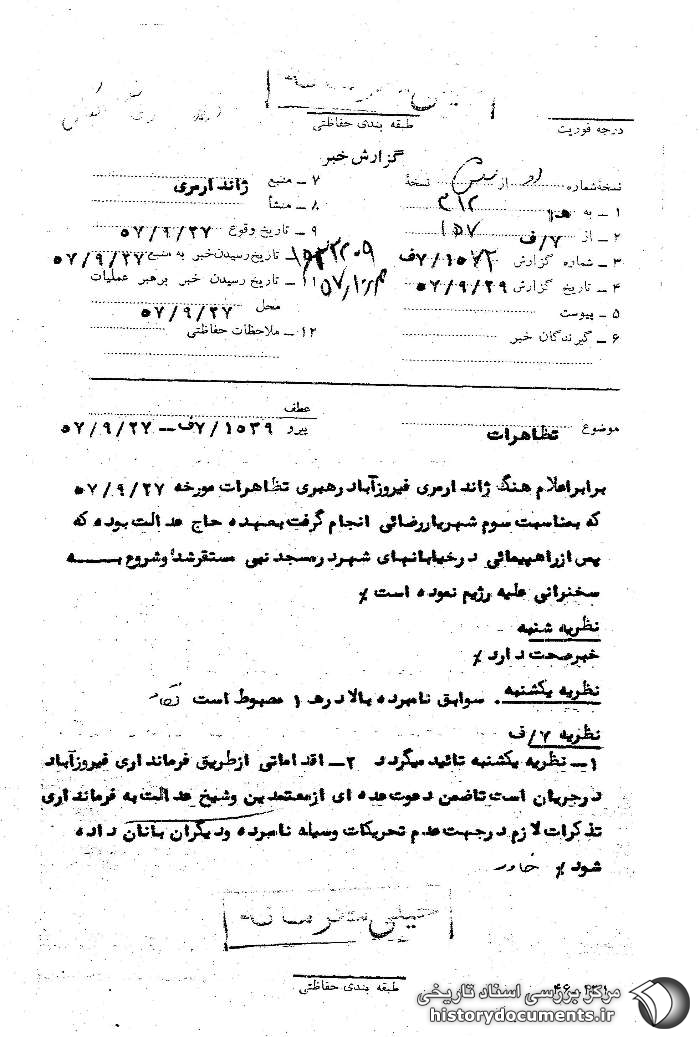 خیلی محرمانه
درجه فوریت
طبقه بندی حفاظتی
گزارش خبر
نسخهٔ شماره دو از سه نسخهٔ
۱ ـ به ۳۱۲
۲ ـ از ۷/ف ۱۵۷
۳ ـ شماره گزارش ۷/۱۵۷۲ف
۴ ـ تاریخ گزارش ۵۷/۹/۲۹
۵ ـ پیوست
۶ ـ گیرندگان خبر
۷ ـ منبع ژاندارمری
۸ ـ منشأ
۹ ـ تاریخ وقوع ۵۷/۹/۲۷
تاریخ رسیدن خبر به منبع ۵۷/۹/۲۷
۱۱ ـ تاریخ رسیدن خبر برهبر عملیات
محل ۵۷/۹/۲۷
۱۲ ـ ملاحظات حفاظتی
موضوع تظاهرات
عطف
پیرو ۷/۱۵۳۹ف ـ ۵۷/۹/۲۷
برابر اعلام هنگ ژاندارمری فیروزآباد رهبری تظاهرات مورخه ۵۷/۹/۲۷
که بمناسبت سوم شهریار رضائی انجام گرفت بعهده حاج عدالت بوده که
پس از راهپیمائی در خیابانهای شهر در مسجد نبی مستقر شد و شروع به
سخنرانی علیه رژیم نموده است٪
نظریه شنبه
خبر صحت دارد٪
نظریه یکشنبه . سوابق نامبرده بالا در هـ ۱ مضبوط است
نظریه ۷/ف
۱ ـ نظریه یکشنبه تائید میگردد ۲ ـ اقداماتی از طریق فرمانداری فیروزآباد
در جریان است تا ضمن دعوت عده ای از معتمدین و شیخ عدالت به فرمانداری
تذکرات لازم در جهت عدم تحریکات وسیله نامبرده و دیگران بانان داده
شود٪ خاور
خیلی محرمانه
طبقه بندی حفاظتی
مرکز بررسی اسناد تاریخی
historydocuments.ir